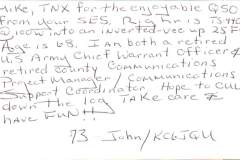 Mike, TNX for the enjoyable QSO
from your SES. Rig hr is
@ 100W into an inverted-vee up 25F
Age is 68. I am both a retired
U.S Army Chief Warrant Officer &
retired County Communications
Project Manager / Communications
Support Coordinator. Hope to CUL
down the log. Take care &
have FUN!!
73 John/KC6JGU